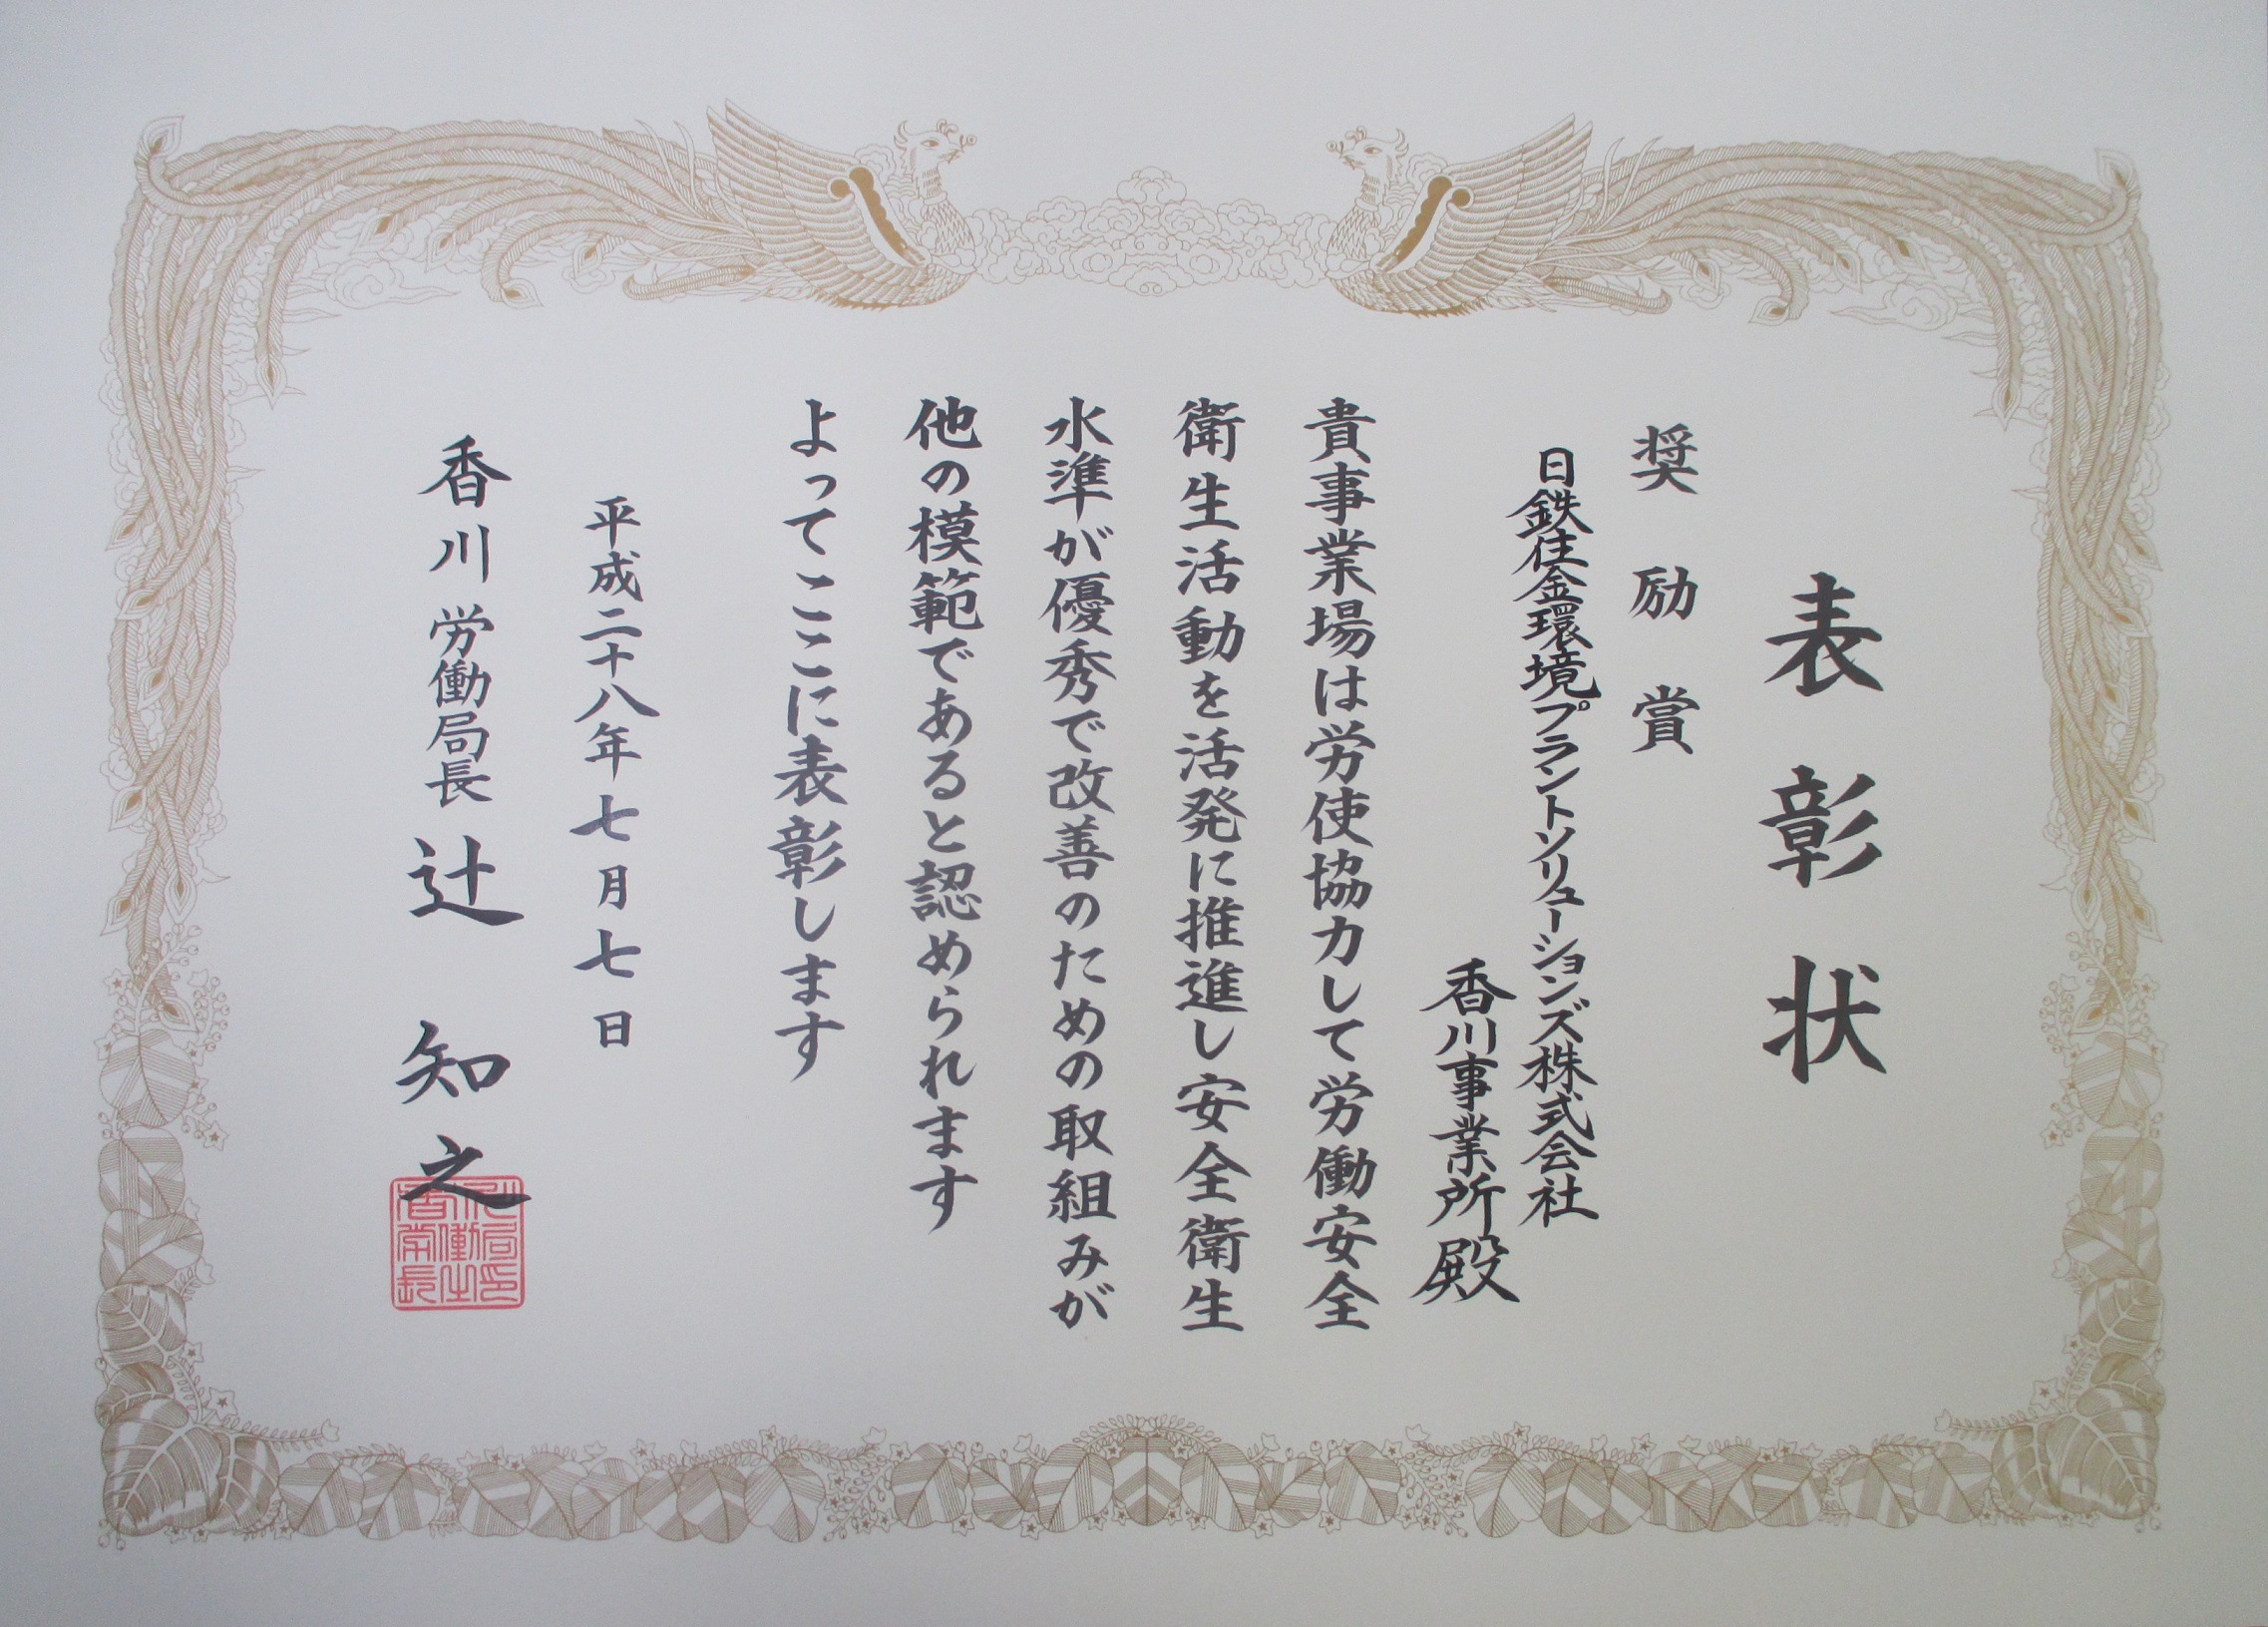 表彰状
奨励賞
日鉄住金環境プラントソリューションズ株式会社
香川事業所殿
貴事業場は労使協力して労働安全
衛生活動を活発に推進し安全衛生
水準が優秀で改善のための取組みが
他の模範であると認められます
よってここに表彰します
平成二十八年七月七日
香川労働局長辻知之